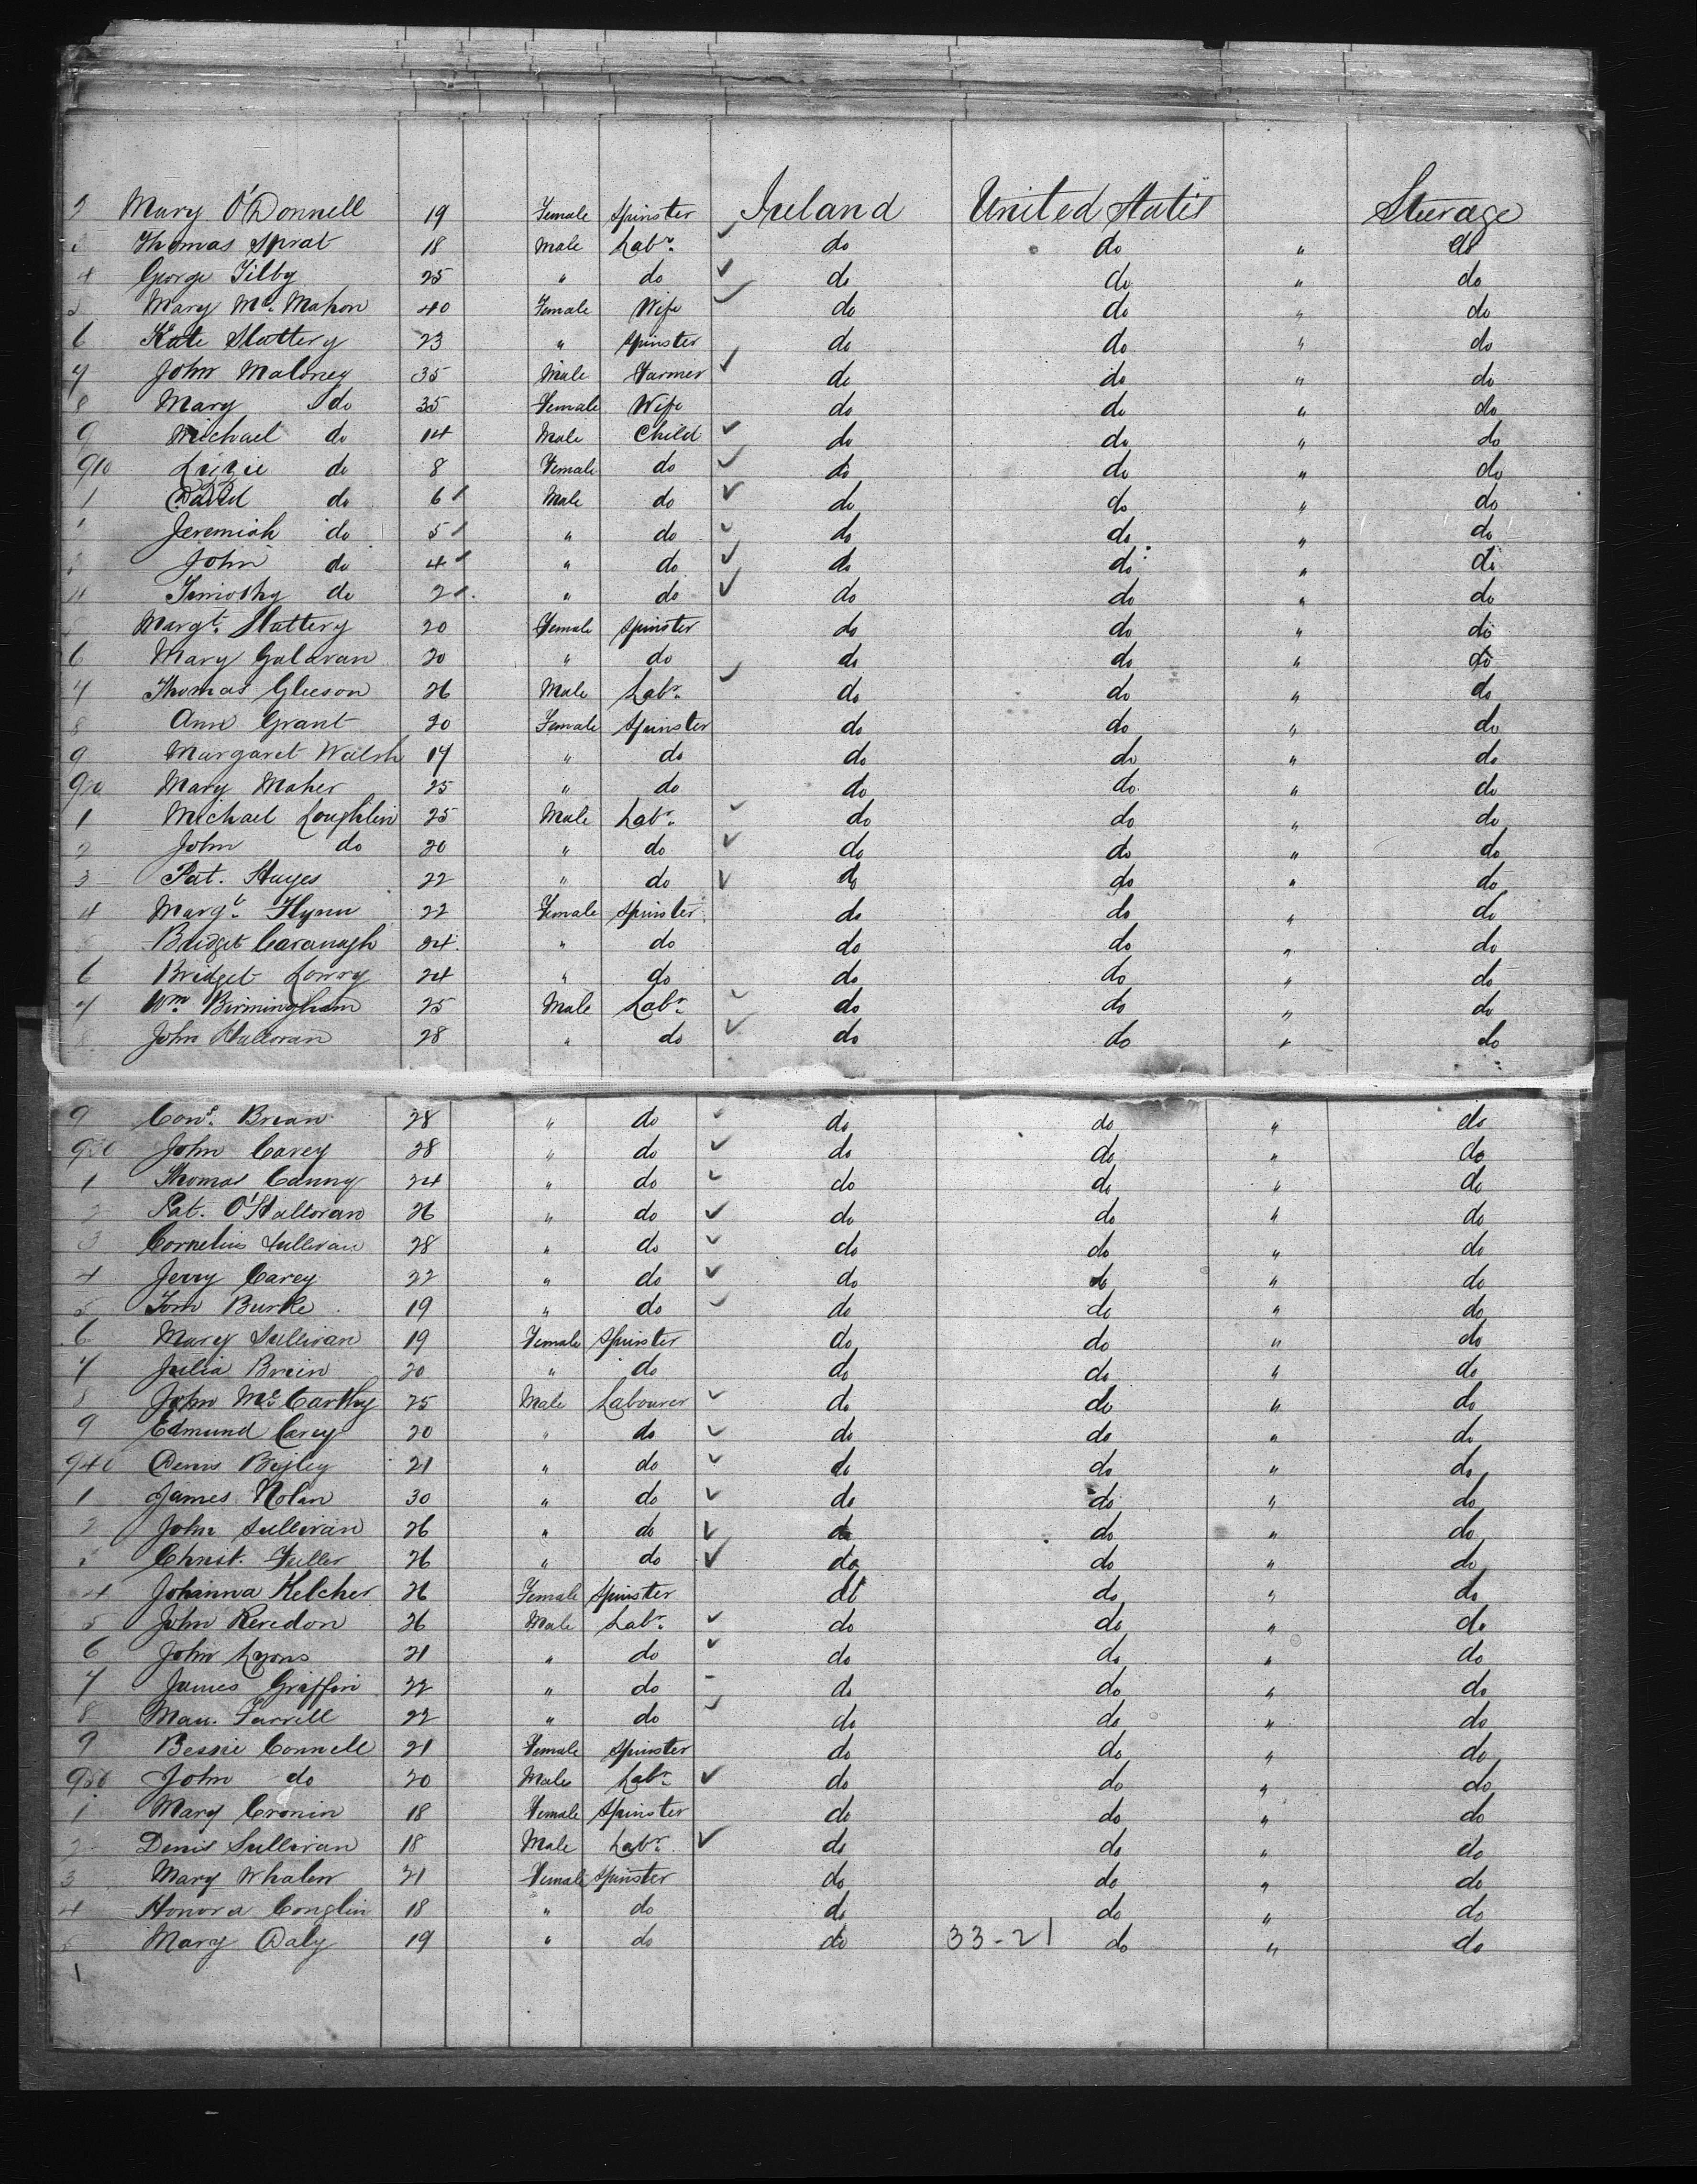 2 Mary O'Donnell 19 Female Spinster Ireland United States Steerage
Thomas Sprat 18 Male Labr. do do " do
4 George Tilby 25 " do do do " do
5 Mary Mc. Mahon 40 Female Wife do do " do
6 Kate Slattery 23 " Spinster do do " do
7 John Maloney 35 Male Farmer do do " do
8 Mary do 35 Female Wife do do " do
9 Michael do 14 Male Child do do " do
910 Lizzie do 8 Female do do do " do
1 David do 6 Male do do do " do
Jeremiah do 5 " do do do " do
3 John do 4 " do do do " do
4 Timothy do 2 " do do do " do
5 Margt. Slattery 20 Female Spinster do do " do
6 Mary Galavan 20 " do do do " do
7 Thomas Gleeson 26 Male Labr. do do " do
8 Ann Grant 20 Female Spinster do do " do
9 Margaret Walsh 17 " do do do " do
920 Mary Maher 25 " do do do " do
1 Michael Loughlin 25 Male Labr. do do " do
2 John do 20 " do do do " do
3 Pat. Hayes 22 " do do do " do
4 Margt. Flynn 22 Female Spinster do do " do
Bridget Cavanagh 24 " do do do " do
6 Bridget Lowry 24 " do do do " do
7 Wm. Birmingham 25 Male Labr. do do " do
8 John Halloran 28 " do do do " do
9 Cons. Brean 28 " do do do " do
930 John Carey 28 " do do do " do
1 Thomas Canny 24 " do do do " do
2 Pat. O'Halloran 26 " do do do " do
3 Cornelius Sullivan 28 " do do do " do
4 Jerry Carey 22 " do do do " do
5 Tom Burke 19 " do do do " do
6 Mary Sullivan 19 Female Spinster do do " do
7 Julia Brein 20 " do do do " do
8 John McCarthy 25 Male Labourer do do " do
9 Edmund Carey 20 " do do do " do
940 Denis Begley 21 " do do do " do
1 James Nolan 30 " do do do " do
2 John Sullivan 26 " do do do " do
3 Christ. Fuller 26 " do do do " do
4 Johanna Kelcher 26 Female Spinster do do " do
5 John Reredon 26 Male Labr. do do " do
6 John Lyons 21 " do do do " do
7 James Griffin 22 " do do do " do
8 Mau. Farrell 22 " do do do " do
9 Bessie Connell 21 Female Spinster do do " do
950 John do 20 Male Labr. do do " do
1 Mary Cronin 18 Female Spinster do do " do
2 Denis Sullivan 18 Male Labr. do do " do
3 Mary Whalen 21 Female Spinster do do " do
4 Honora Conglin 18 " do do do " do
5 Mary Daly 19 " do do 33-21 do " do
1